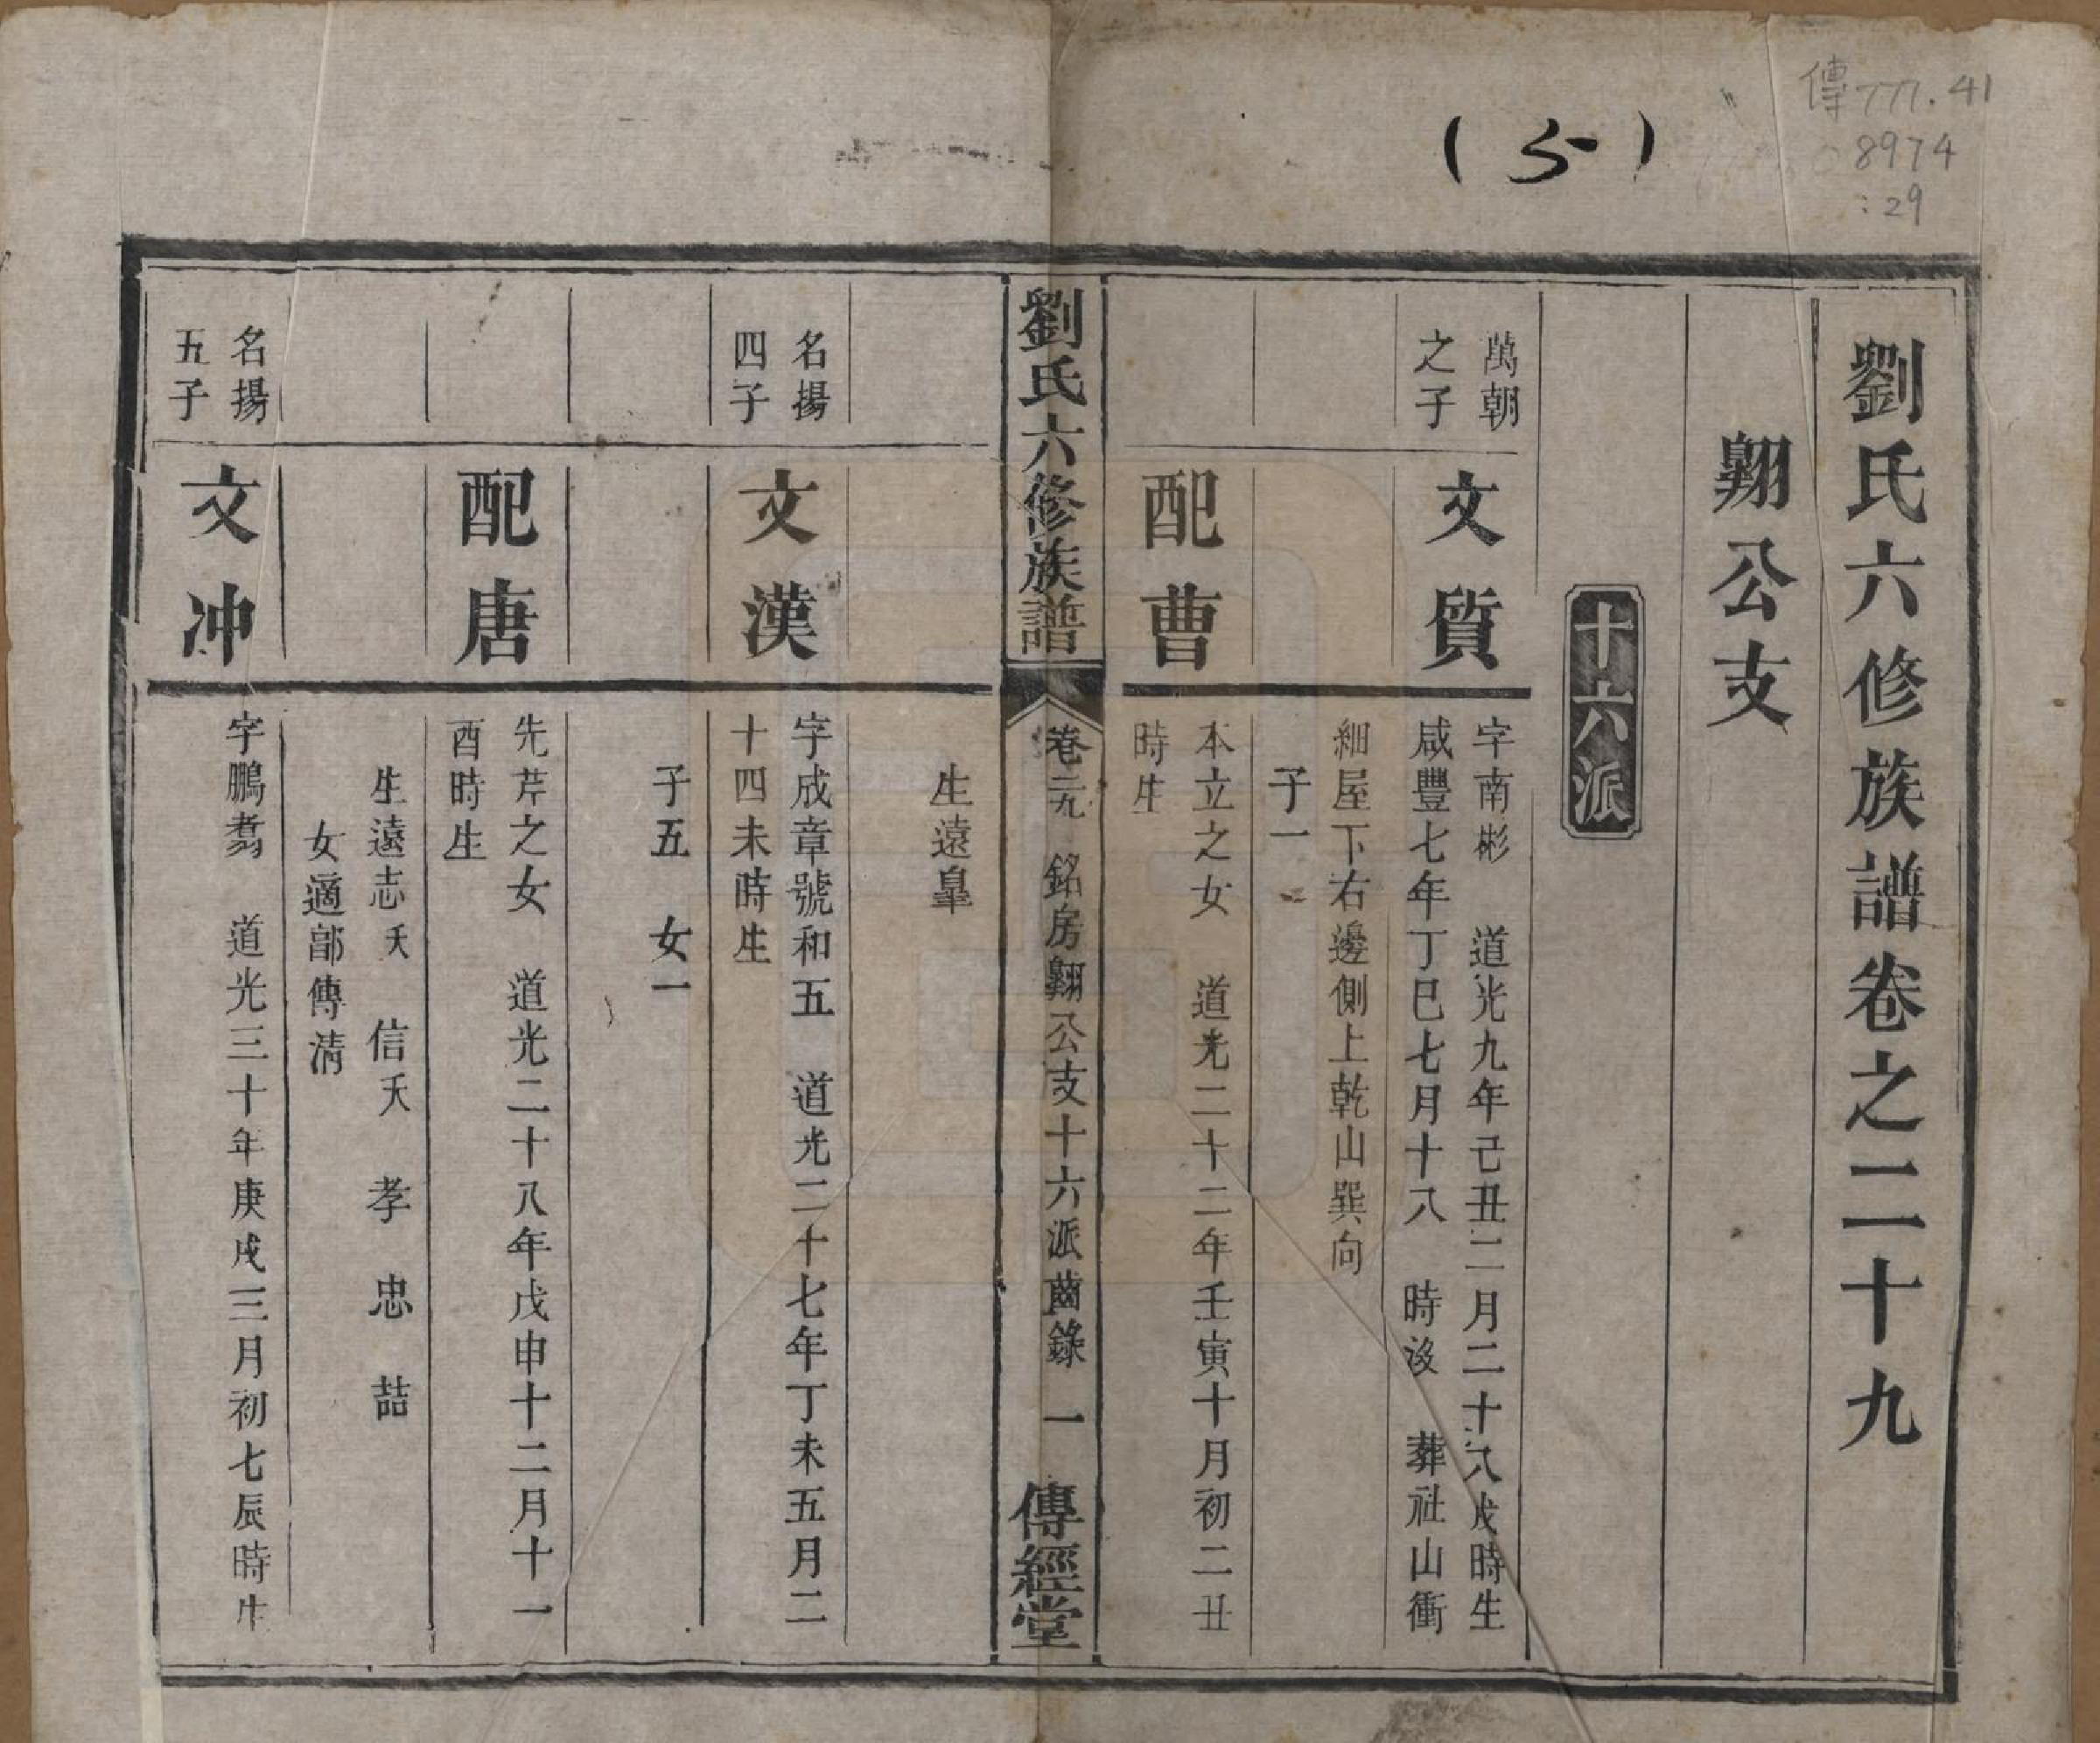 傳777.41
8974
:29
(5)
劉氏六修族譜卷之二十九
翺公支
十六派
萬朝
之子
文質
字南彬 道光九年己丑二月二十八戌時生
咸豐七年丁巳七月十八 時沒 葬社山衝
細屋下右邊側上乾山巽向
子一
配曹
本立之女 道光二十二年壬寅十月初二丑
時生
劉氏六修族譜
卷二九 銘房翺公支十六派齒錄 一
傳經堂
生遠皐
名揚
四子
文漢
字成章號和五 道光二十七年丁未五月二
十四未時生
子五 女一
配唐
先芹之女 道光二十八年戊申十二月十一
酉時生
生遠志夭 信夭 孝 忠 喆
女適部傳清
名揚
五子
文冲
字鵬翥 道光三十年庚戌三月初七辰時生